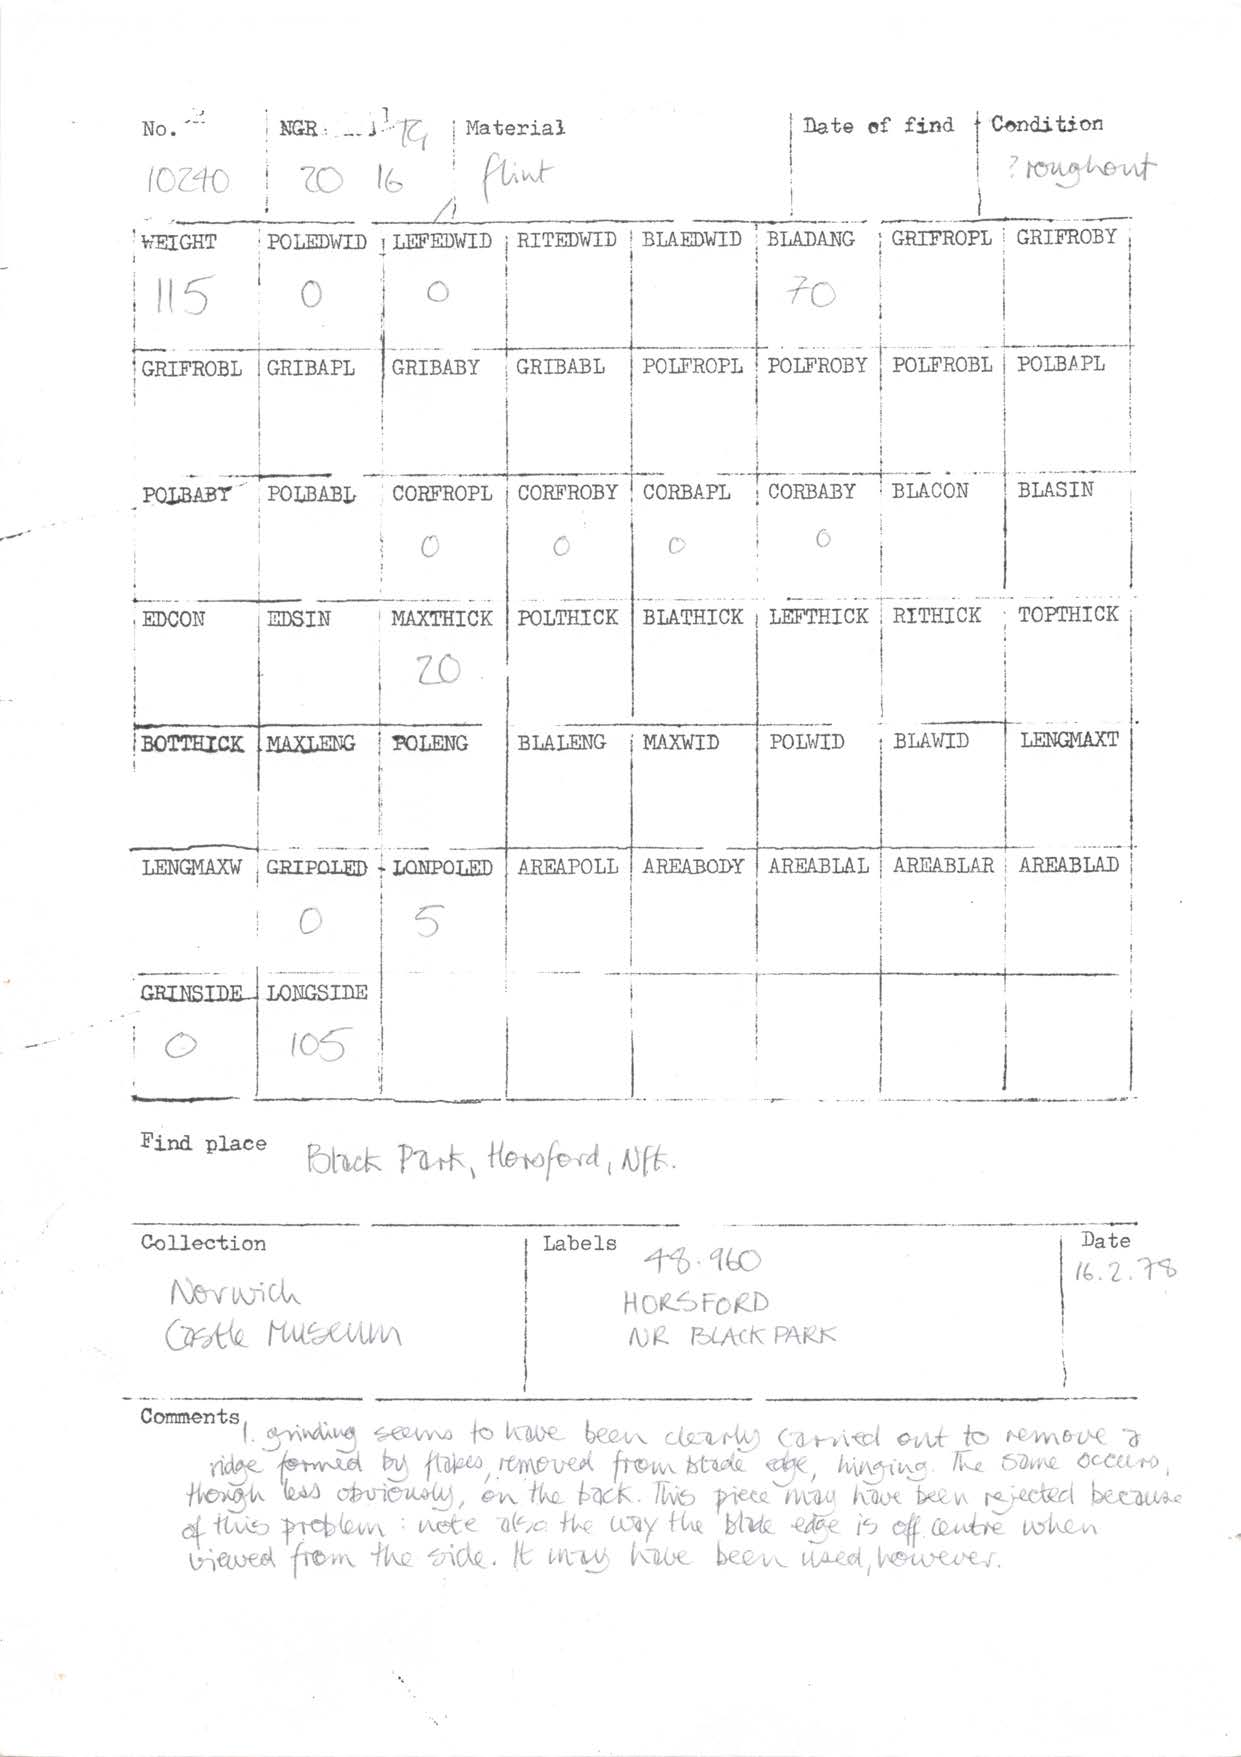 No. NGR TG Material Date of find Condition
10240 20 16 flint ?roughout
WEIGHT POLEDWID LEFEDWID RITEDWID BLAEDWID BLADANG GRIFROPL GRIFROBY
115 0 0 70
GRIFROBL GRIBAPL GRIBABY GRIBABL POLFROPL POLFROBY POLFROBL POLBAPL
POLBABY POLBABL CORFROPL CORFROBY CORBAPL CORBABY BLACON BLASIN
0 0 0 0
EDCON EDSIN MAXTHICK POLTHICK BLATHICK LEFTHICK RITHICK TOPTHICK
20
BOTTHICK MAXLENG POLENG BLALENG MAXWID POLWID BLAWID LENGMAXT
LENGMAXW GRIPOLED LONPOLED AREAPOLL AREABODY AREABLAL AREABLAR AREABLAD
0 5
GRINSIDE LONGSIDE
0 105
Find place Black Park, Horsford, Nfk.
Collection Labels 48.960 Date
16.2.78
Norwich HORSFORD
Castle Museum NR BLACK PARK
Comments 1. grinding seems to have been clearly carried out to remove a
ridge formed by flakes, removed from blade edge, hinging. The same occurs,
though less obviously, on the back. This piece may have been rejected because
of this problem : note also the way the blade edge is off centre when
viewed from the side. It may have been used, however.